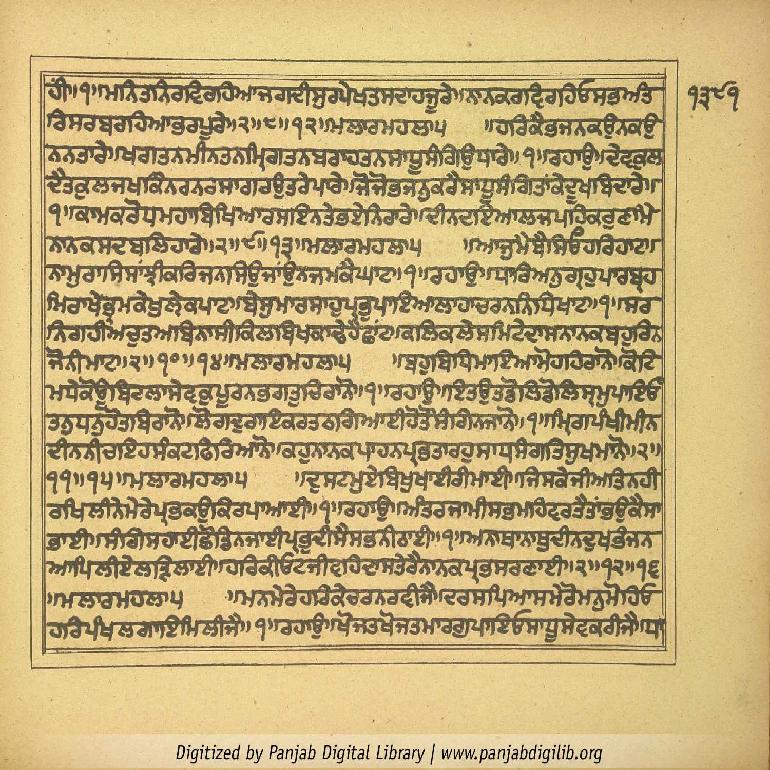 ਹੀ॥੧॥ਮਨਿਤਨਿਰਵਿਰਹਿਆਜਗਦੀਸੁਰਪੇਖਤਸਦਾਹਜੂਰੇ॥ਨਾਨਕਰਵਿਰਹਿਓਸਭਅੰਤ ੧੩੯੧
ਰਿਸਰਬਰਹਿਆਭਰਪੂਰੇ॥੨॥੮॥੧੨॥ਮਲਾਰਮਹਲਾ੫ ॥ਹਰਿਕੈਭਜਨਕਉਨਕਉ
ਨਨਤਾਰੇ॥ਖਗਤਨਮੀਨਤਨਮ੍ਰਿਗਤਨਬਰਾਹਤਨਸਾਧੂਸੰਗਿਉਧਾਰੇ॥੧॥ਰਹਾਉ॥ਦੇਵਕੁਲ
ਦੈਤਕੁਲਜਖਕਿੰਨਰਨਰਸਾਗਰਉਤਰੇਪਾਰੇ॥ਜੋਜੋਭਜਨੁਕਰੈਸਾਧੂਸੰਗਿਤਾਕੇਦੂਖਬਿਦਾਰੇ॥
੧॥ਕਾਮਕਰੋਧਮਹਾਬਿਖਿਆਰਸਇਨਤੇਭਏਨਿਰਾਰੇ॥ਦੀਨਦਇਆਲਜਪਹਿਕਰੁਣਾਮੈ
ਨਾਨਕਸਦਬਲਿਹਾਰੇ॥੨॥੯॥੧੩॥ਮਲਾਰਮਹਲਾ੫ ॥ਆਜੁਮੈਬੈਸਿਓਹਰਿਹਾਟ॥
ਨਾਮੁਰਾਸਿਸਾਝੀਕਰਿਜਨਸਿਉਜਾਂਉਨਜਮਕੈਘਾਟ॥੧॥ਰਹਾਉ॥ਧਾਰਿਅਨੁਗ੍ਰਹੁਪਾਰਬ੍ਰਹ
ਮਿਰਾਖੇਭ੍ਰਮਕੇਖੁਲੇਕਪਾਟ॥ਬੇਸੁਮਾਰਸਾਹੁਪ੍ਰਭੁਪਾਇਆਲਾਹਾਚਰਨਨਿਧਿਖਾਟ॥੧॥ਸਰ
ਨਿਗਹੀਅਚੁਤਅਬਿਨਾਸੀਕਿਲਬਿਖਕਾਢੇਹੈਛਾਂਟਿ॥ਕਲਿਕਲੇਸਮਿਟੇਦਾਸਨਾਨਕਬਹੁਰਿਨ
ਜੋਨੀਮਾਟ॥੨॥੧੦॥੧੪॥ਮਲਾਰਮਹਲਾ੫ ॥ਬਹੁਬਿਧਿਮਾਇਆਮੋਹਹਿਰਾਨੋ॥ਕੋਟਿ
ਮਧੇਕੋਊਬਿਰਲਾਸੇਵਕੁਪੂਰਨਭਗਤੁਚਿਰਾਨੋ॥੧॥ਰਹਾਉ॥ਇਤਉਤਡੋਲਿਡੋਲਿਸ੍ਰਮੁਪਾਇਓ
ਤਨੁਧਨੁਹੋਤਬਿਰਾਨੋ॥ਲੋਗਦੁਰਾਇਕਰਤਠਗਿਆਈਹੋਤੌਸੰਗਿਨਜਾਨੋ॥੧॥ਮ੍ਰਿਗਪੰਖੀਮੀਨ
ਦੀਨਨੀਚਇਹਸੰਕਟਫਿਰਿਆਨੋ॥ਕਹੁਨਾਨਕਪਾਹਨਪ੍ਰਭਤਾਰਹੁਸਾਧਸੰਗਤਿਸੁਖਮਾਨੋ॥੨॥
੧੧॥੧੫॥ਮਲਾਰਮਹਲਾ੫ ॥ਦੁਸਟਮੁਏਬਿਖੁਖਾਈਰੀਮਾਈ॥ਜਿਸਕੇਜੀਅਤਿਨਹੀ
ਰਖਿਲੀਨੇਮੇਰੇਪ੍ਰਭਕਉਕਿਰਪਾਆਈ॥੧॥ਰਹਾਉ॥ਅੰਤਰਜਾਮੀਸਭਮਹਿਵਰਤੈਤਾਂਭਉਕੈਸਾ
ਭਾਈ॥ਸੰਗਿਸਹਾਈਛੋਡਿਨਜਾਈਪ੍ਰਭੁਦੀਸੈਸਭਨੀਠਾਈ॥੧॥ਅਨਾਥਾਨਾਥੁਦੀਨਦੁਖਭੰਜਨ
ਆਪਿਲੀਏਲੜਿਲਾਈ॥ਹਰਿਕੀਓਟਜੀਵਹਿਦਾਸਤੇਰੈਨਾਨਕਪ੍ਰਭਸਰਣਾਈ॥੨॥੧੨॥੧੬
॥ਮਲਾਰਮਹਲਾ੫ ॥ਮਨਮੇਰੇਹਰਿਕੇਚਰਨਰਵੀਜੈ॥ਦਰਸਪਿਆਸਮੇਰੋਮਨੁਮੋਹਿਓ
ਹਰਿਪੰਖਲਗਾਇਮਿਲੀਜੈ॥੧॥ਰਹਾਉ॥ਖੋਜਤਖੋਜਤਮਾਰਗੁਪਾਇਓਸਾਧੂਸੇਵਕਰੀਜੈ॥ਧਾ
Digitized by Panjab Digital Library | www.panjabdigilib.org